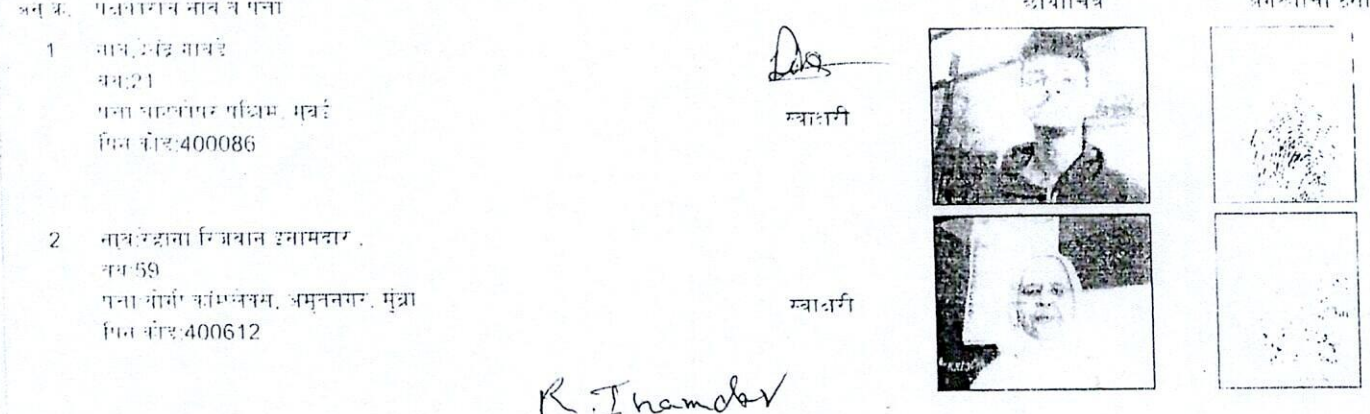 अनु क्र. पक्षकाराचे नाव व पत्ता छायाचित्र अंगठ्याचा ठसा
1 नाव: गावडे
वय:21
पत्ता घाटकोपर पश्चिम, मुंबई
पिन कोड:400086
स्वाक्षरी
2 नाव:रेहाना रिजवान इनामदार .
वय:59
पत्ता कॉम्प्लेक्स, अमृतनगर, मुंब्रा
पिन कोड:400612
स्वाक्षरी
R. Inamdar